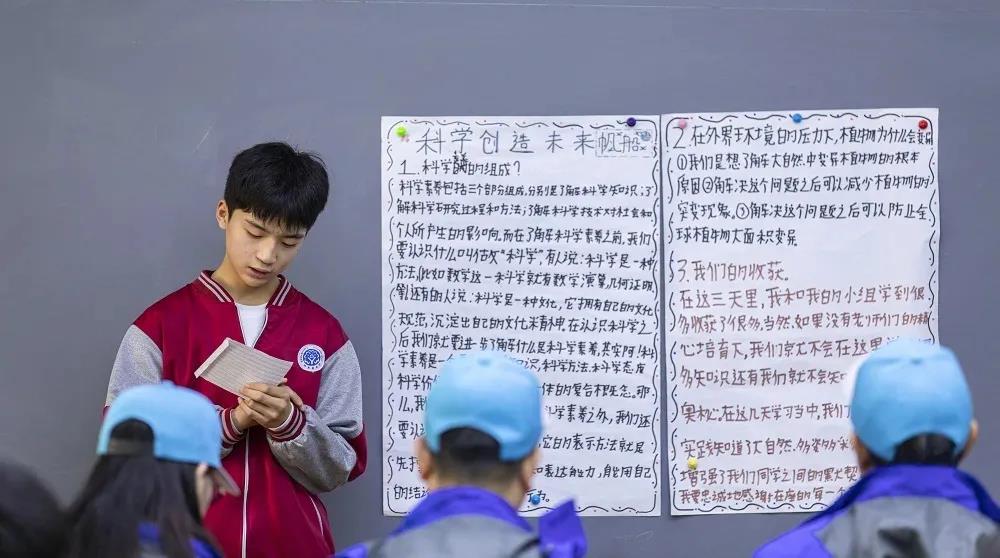 科学创造未来 帆船
1.科学素养的组成?
科学素养包括三个部分组成,分别是了解科学知识;了
解科学研究过程和方法;了解科学技术对社会和
个人所产生的影响。而在了解科学素养之前,我们
要认识什么叫做“科学”,有人说:科学是一种
方法,比如数学这一科学就有数学演算,几何证明
到还有的人说:科学是一种文化,它拥有自己的文化
规范,沉淀出自己的文化 在认识科学之
后我们就要进一步了解什么是科学素养,其实阿!科
学素养是 科学方法,科学态度
科学 体的复合概念。那
么,我 学素养之外,我们还
要认 它的表示方法就是
先 和表达能力,能用自
的结论
2.在外界环境的压力下,植物为什么会变异
①我们是想了解大自然中变异植物的根本
原因②解决这个问题之后可以减少植物的
突变现象,③解决这个问题之后可以防止全
球植物大面积变异
3.我们的收获。
在这三天里,我和我的小组学到很
多收获了很多,当然,如果没有老师们的精
心培育下,我们就不会在这里
多知识还有我们就不会知
奥秘,在这几天学习当中,我们
实践知道了大自然多姿多彩
增强了我们同学之间的默契
我要忠诚地感谢在座的每一个